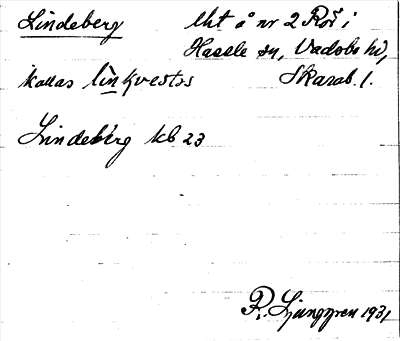 Lindeberg lht å nr 2 Rör i
Hassle sn, Vadsbo hd,
kallas linkvestss Skarab. l.
Lindebärg kb 23
R. Ljunggren 1931